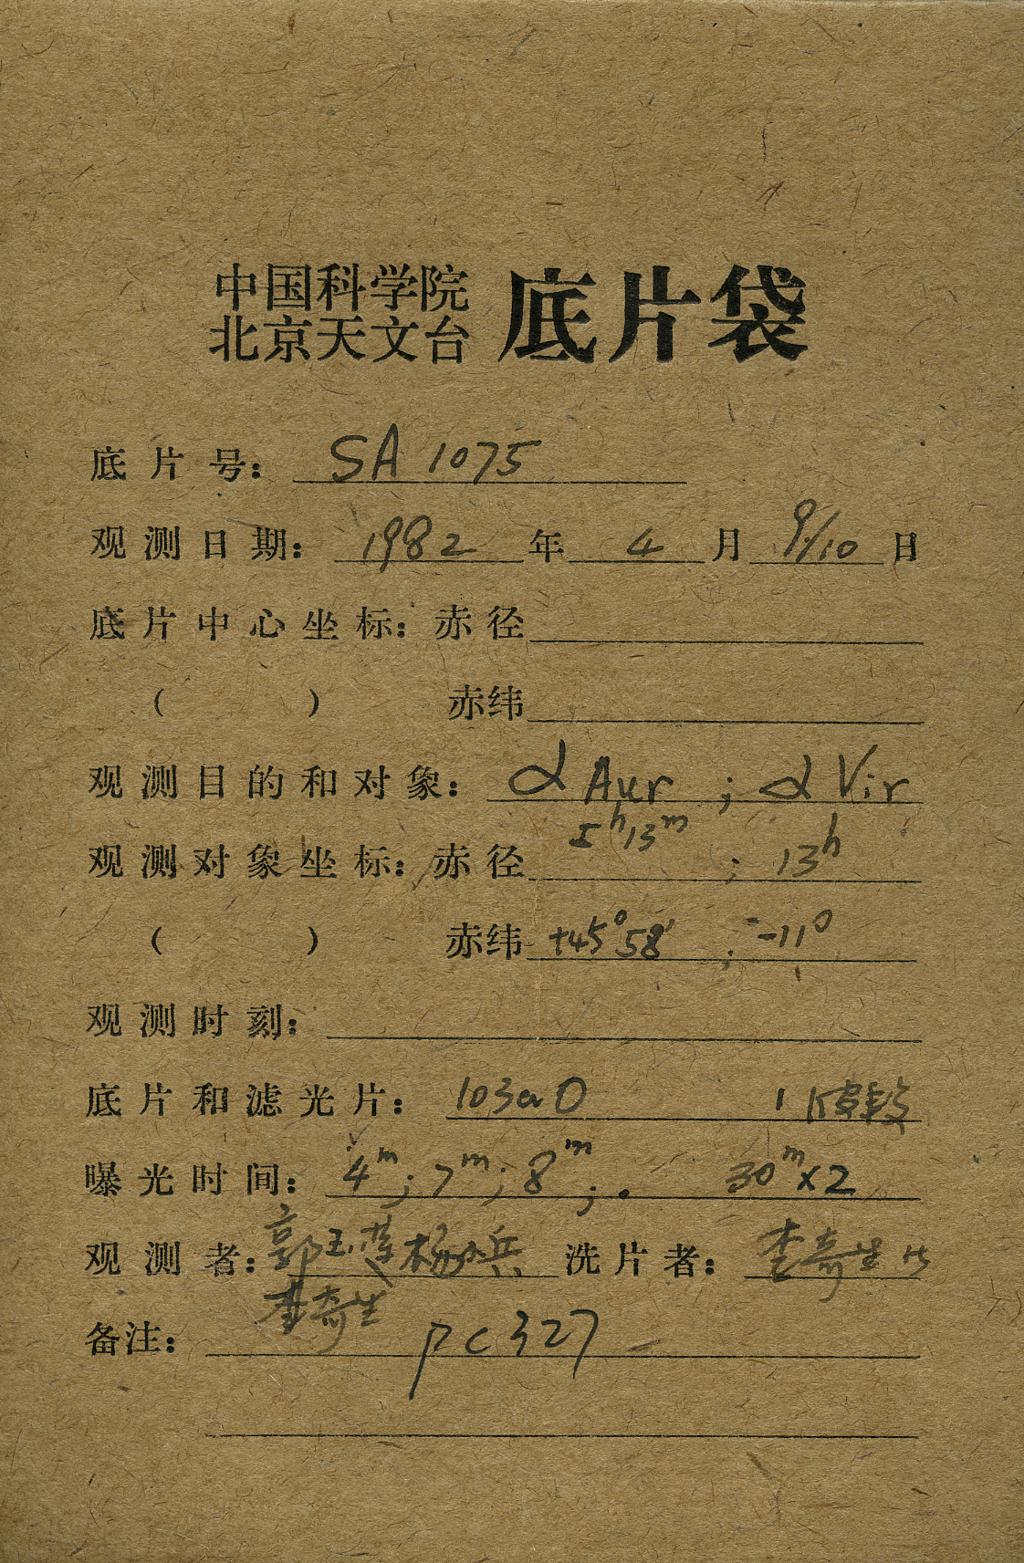 中国科学院
北京天文台 底片袋
底片号: SA 1075
观测日期: 1982 年 4 月 9/10 日
底片中心坐标: 赤径
( ) 赤纬
观测目的和对象: α Aur ; α Vir
观测对象坐标: 赤径 5h13m ; 13h
( ) 赤纬 +45°58' ; -11°
观测时刻:
底片和滤光片: 103aO 1
曝光时间: 4m; 7m; 8m; 30m×2
观测者: 郭玉莲 杨 兵 洗片者: 李奇生
李奇生
备注: pc 327